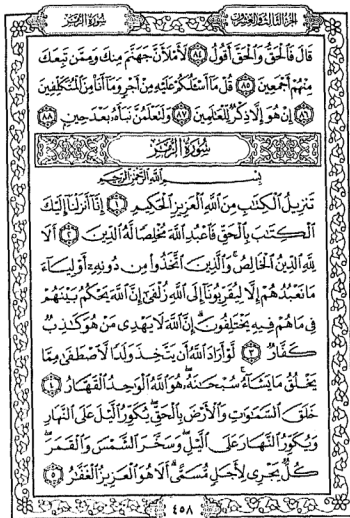 الجزء الثالث والعشرون
سورة الزمر
قَالَ فَالْحَقُّ وَالْحَقَّ أَقُولُ ﴿٨٤﴾ لَأَمْلَأَنَّ جَهَنَّمَ مِنكَ وَمِمَّن تَبِعَكَ
مِنْهُمْ أَجْمَعِينَ ﴿٨٥﴾ قُلْ مَا أَسْـَٔلُكُمْ عَلَيْهِ مِنْ أَجْرٍ وَمَا أَنَا۠ مِنَ الْمُتَكَلِّفِينَ
﴿٨٦﴾ إِنْ هُوَ إِلَّا ذِكْرٌ لِّلْعَالَمِينَ ﴿٨٧﴾ وَلَتَعْلَمُنَّ نَبَأَهُۥ بَعْدَ حِينٍ ﴿٨٨﴾
سورة الزمر
بِسْمِ اللَّهِ الرَّحْمَٰنِ الرَّحِيمِ
تَنزِيلُ الْكِتَٰبِ مِنَ اللَّهِ الْعَزِيزِ الْحَكِيمِ ﴿١﴾ إِنَّا أَنزَلْنَا إِلَيْكَ
الْكِتَٰبَ بِالْحَقِّ فَاعْبُدِ اللَّهَ مُخْلِصًا لَّهُ الدِّينَ ﴿٢﴾ أَلَا
لِلَّهِ الدِّينُ الْخَالِصُ وَالَّذِينَ اتَّخَذُوا مِن دُونِهِۦ أَوْلِيَاءَ
مَا نَعْبُدُهُمْ إِلَّا لِيُقَرِّبُونَا إِلَى اللَّهِ زُلْفَىٰ إِنَّ اللَّهَ يَحْكُمُ بَيْنَهُمْ
فِي مَا هُمْ فِيهِ يَخْتَلِفُونَ إِنَّ اللَّهَ لَا يَهْدِي مَنْ هُوَ كَٰذِبٌ
كَفَّارٌ ﴿٣﴾ لَّوْ أَرَادَ اللَّهُ أَن يَتَّخِذَ وَلَدًا لَّاصْطَفَىٰ مِمَّا
يَخْلُقُ مَا يَشَاءُ سُبْحَٰنَهُۥ هُوَ اللَّهُ الْوَٰحِدُ الْقَهَّارُ ﴿٤﴾
خَلَقَ السَّمَٰوَٰتِ وَالْأَرْضَ بِالْحَقِّ يُكَوِّرُ اللَّيْلَ عَلَى النَّهَارِ
وَيُكَوِّرُ النَّهَارَ عَلَى اللَّيْلِ وَسَخَّرَ الشَّمْسَ وَالْقَمَرَ
كُلٌّ يَجْرِي لِأَجَلٍ مُّسَمًّى أَلَا هُوَ الْعَزِيزُ الْغَفَّٰرُ ﴿٥﴾
٤٥٨